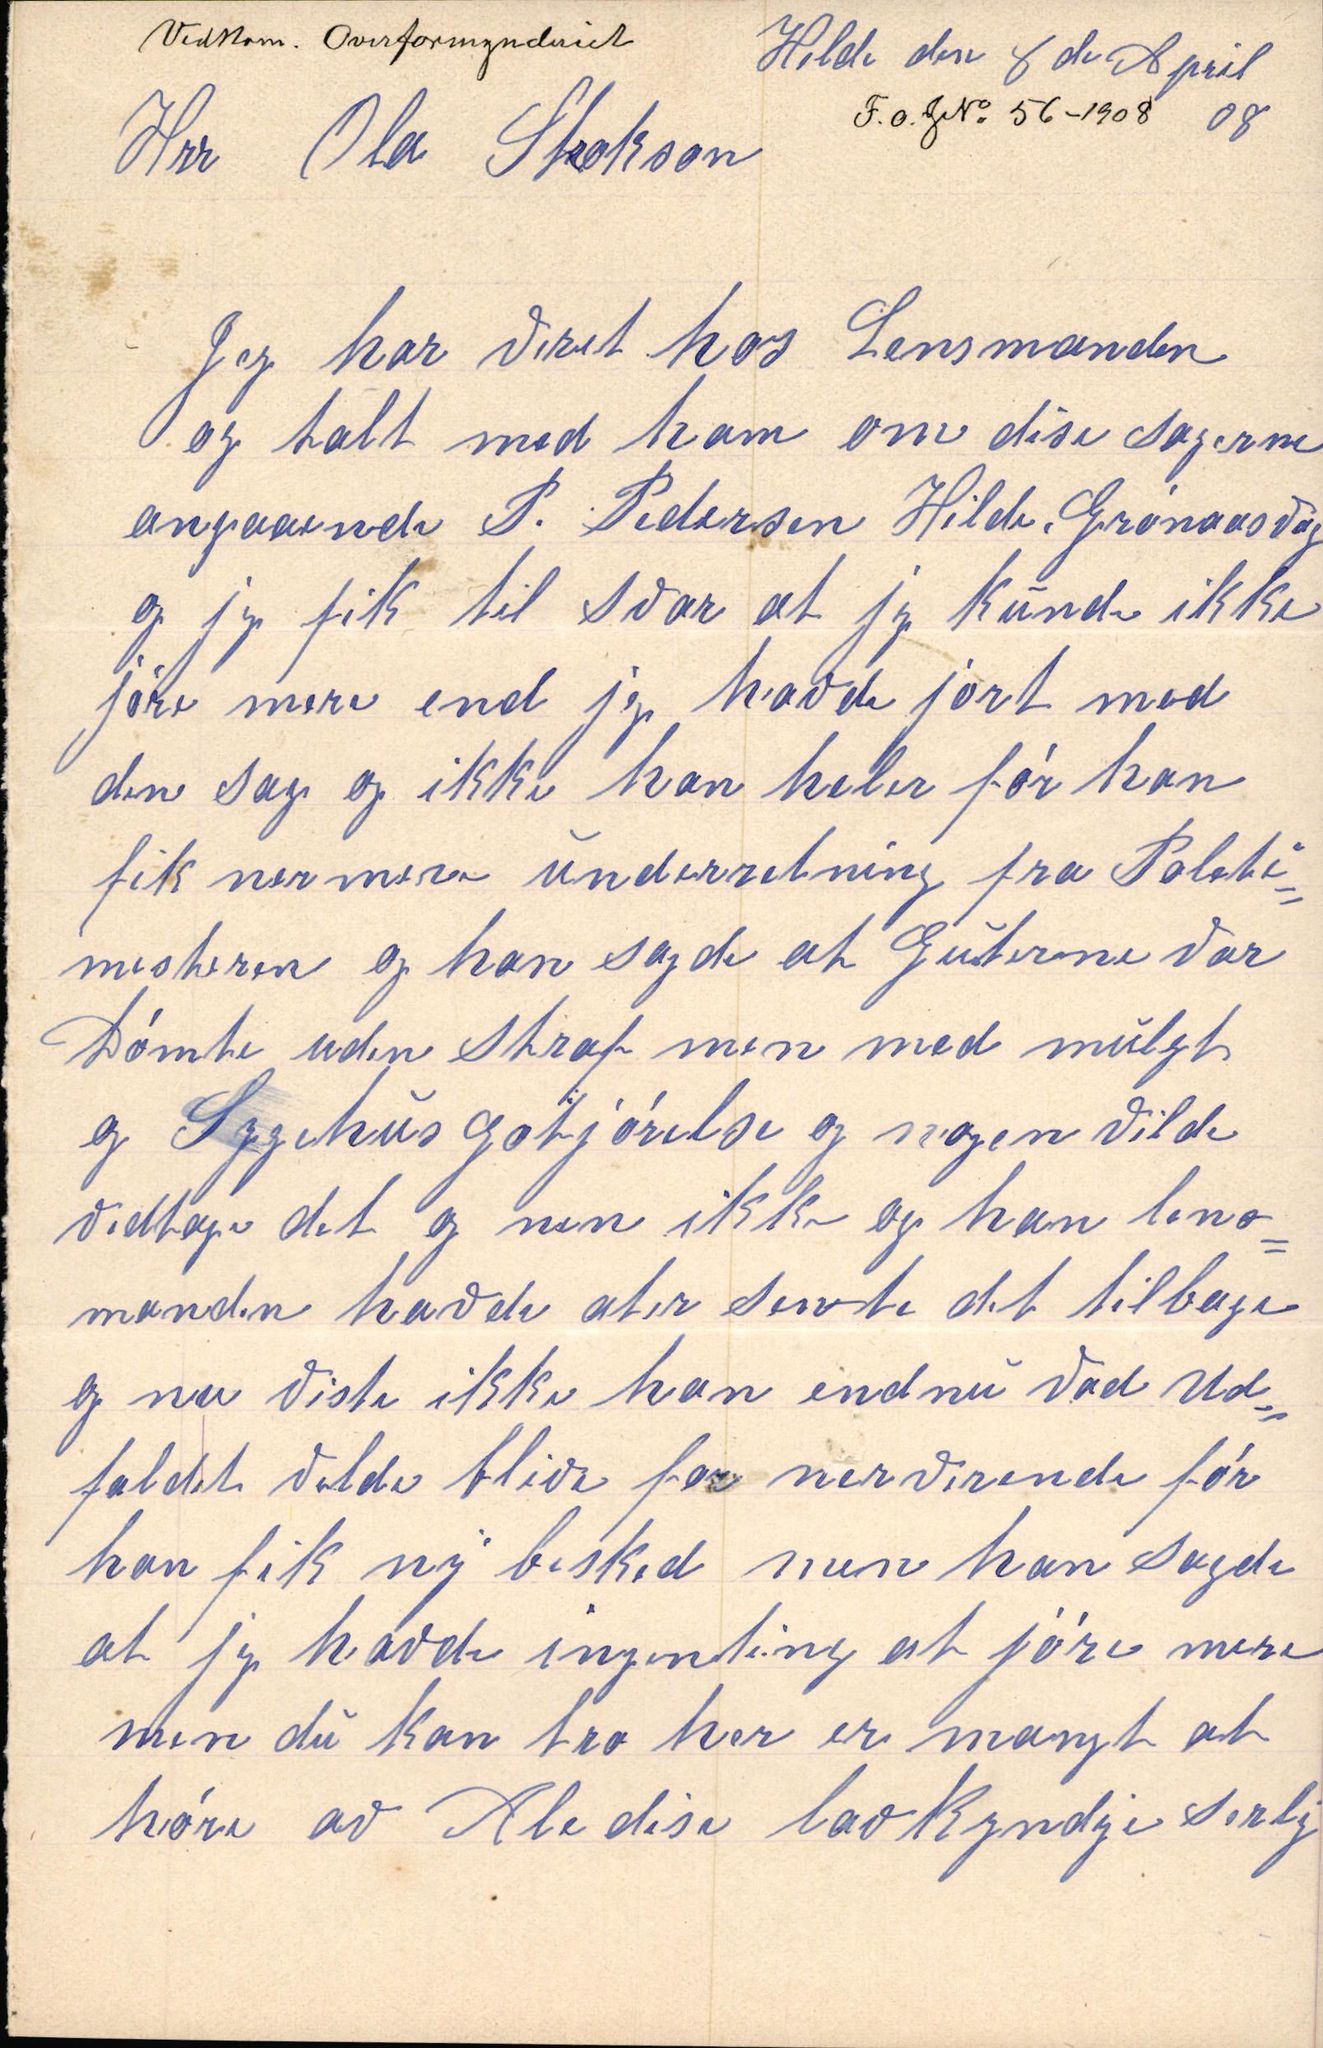 Vedkom. Overformynderiet
Hilde den 8 de April
F. o. J No. 56-1908 08
Hrr Ola Skokson
Jeg har veret hos Lensmanden
og talt med ham om dise sagerne
angaaende P. Pedersen Hilde. Grónaasvåg
og jeg fik til svar at jeg kunde ikke
jóre mere end jeg havde jort med
den sag og ikke han heler fór han
fik nermere underretning fra Politi=
mesteren og han sagde at Guterne var
Dómte uden straf men med mulgt
og Sygehus Gotjórelse og nogen vilde
vedtage det og nen ikke og han lens=
manden havde ater sente det tilbage
og nu viste ikke han endnu vad Ud=
faldet vilde blive for nerverende fór
han fik ny besked men han sagde
at jeg havde ingenting at jóre mere
men du kan tro her er mangt at
hóre av Ale dise lavkyndje serlig